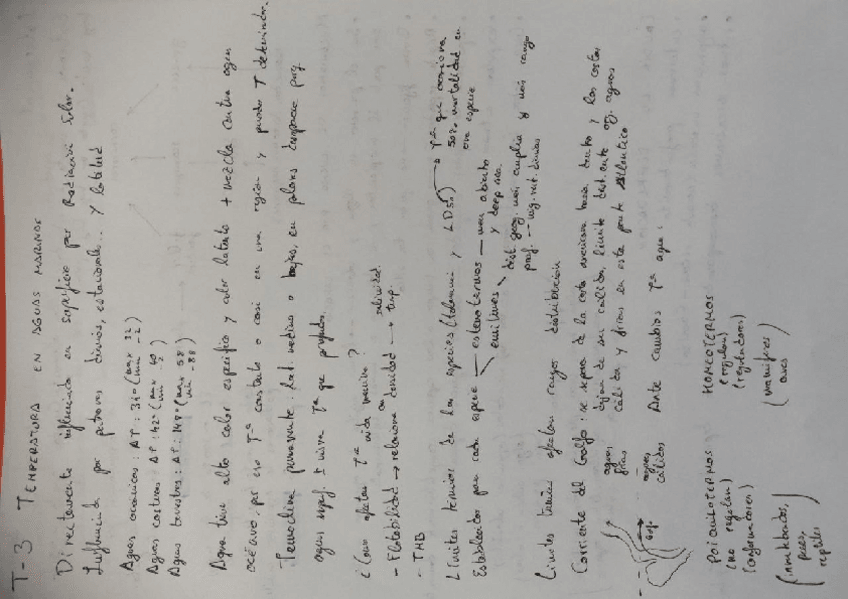 T-3 TEMPERATURA EN AGUAS MARINAS
Directamente influenciado en superficie por Radiación Solar.
Influencia por patrones diarios, estacionales... y latitud
Aguas oceánicas: ΔT: 34º (max 32 min -2)
Aguas costeras ΔT: 42º (max 40 -2)
Aguas terrestres: ΔT: 146º (max 58 min -88)
Agua tiene alto calor específico y calor latente + mezcla continua agua
océano, por eso Tª constante o casi en una región y prof T determinada.
Termoclina permanente. Lat. medias o bajas, en polares
aguas superf. misma Tª que profundas.
¿Como afectan Tª vida marina?
- Flotabilidad → relaciona densidad con temp. salinidad.
- TMB
Límites térmicos de las especies (tolerancia y LD50) → Tª que ocasiona
50% mortalidad en
una especie
Establecidos para cada especie
estenotermos — mar abierto
y deep sea.
euritermos
dist. geog. más amplia y más rango
prof. -- mig. vert. diarias
Límites térmicos afectan rango distribución
Corriente del Golfo se separa de la costa americana hacia dentro y las costas
dejan de ser cálidas, límite dist. ente org. aguas
cálidas y frías en esta parte Atlántico
aguas
frías
aguas
cálidas
Ante cambios Tª agua:
POIQUILOTERMOS
(no regulan)
(conformadores)
(invertebrados,
peces,
reptiles)
HOMEOTERMOS
(regulan)
(reguladores)
(mamíferos
aves)